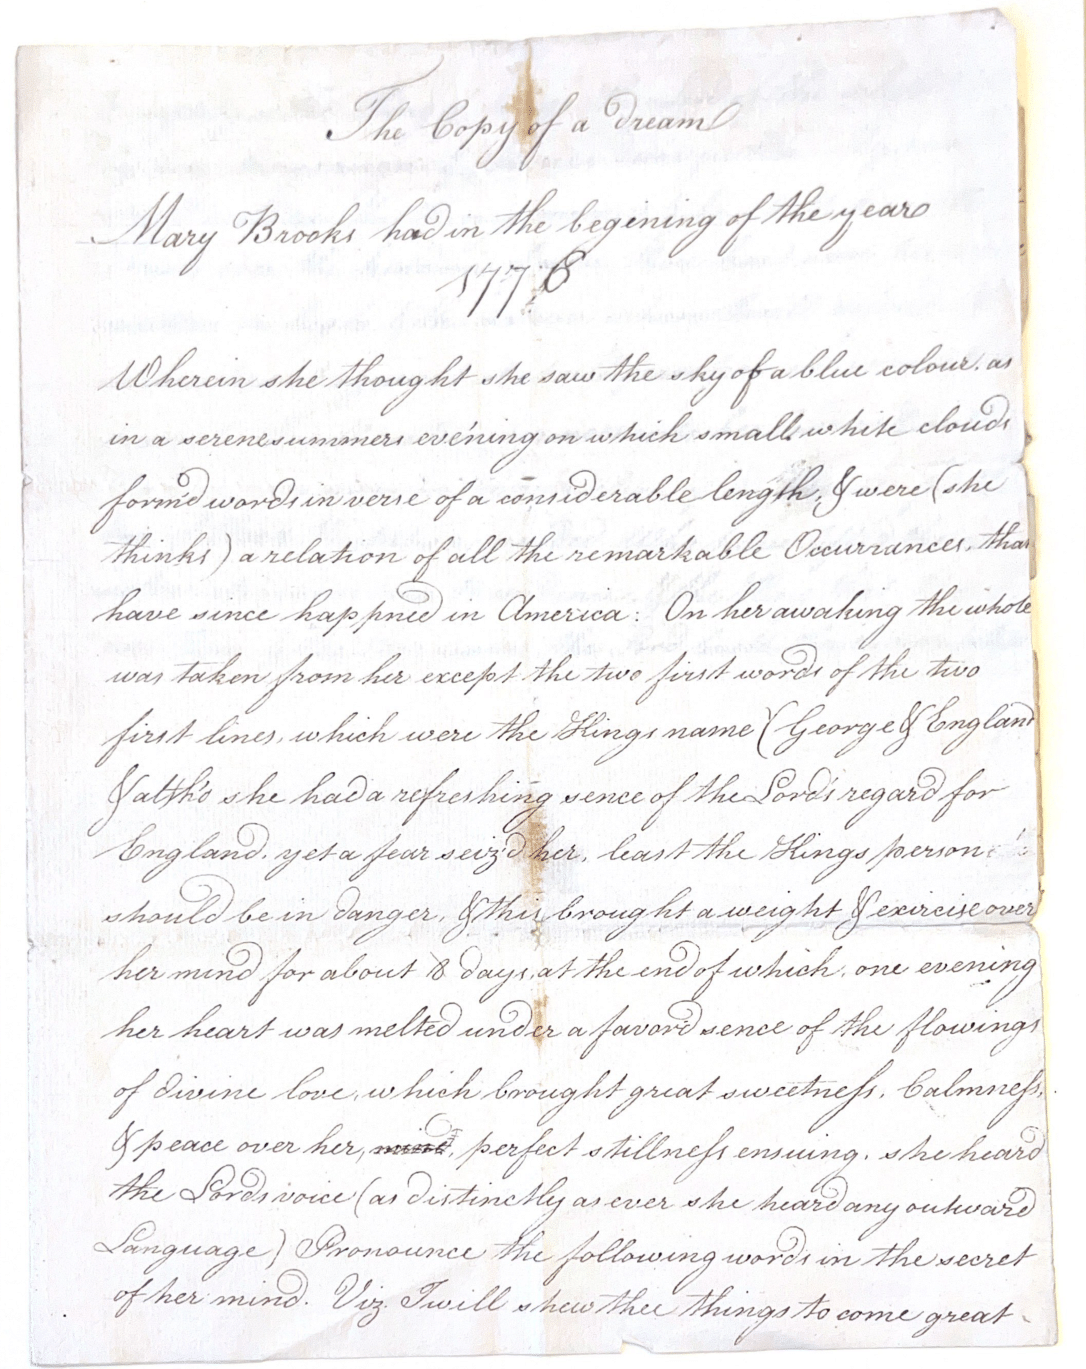 The Copy of a dream
Mary Brooks had in the begining of the year
1776
Wherein she thought she saw the sky of a blue colour, as
in a serene summers evening on which small white clouds
form'd words in verse of a considerable length, & were (she
thinks) a relation of all the remarkable Occurrances, that
have since happned in America: On her awaking the whole
was taken from her except the two first words of the two
first lines, which were the Kings name (George & England
& altho' she had a refreshing sence of the Lord's regard for
England, yet a fear seiz'd her, least the Kings person
should be in danger, & this brought a weight & exircise over
her mind for about 8 days, at the end of which, one evening
her heart was melted under a favor'd sence of the flowings
of divine love, which brought great sweetness, Calmness,
& peace over her, mind, perfect stillness ensuing, she heard
the Lords voice (as distinctly as ever she heard any outward
Language) Pronounce the following words in the secret
of her mind. Viz. I will shew thee things to come great